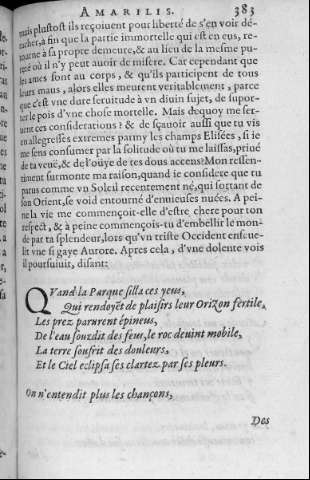 AMARILIS. 383
mais plustost ils reçoiuent pour liberté de s'en voir dé-
tacher, à fin que la partie immortelle qui est en eus, re-
tourne à sa propre demeure, & au lieu de la mesme pu-
reté où il n'y peut auoir de misere. Car cependant que
les ames sont au corps, & qu'ils participent de tous
leurs maus, alors elles meurent veritablement, parce
que c'est vne dure seruitude à vn diuin sujet, de supor-
ter le pois d'vne chose mortelle. Mais dequoy me ser-
uent ces considerations? & de sçauoir aussi que tu vis
en allegresses extremes parmy les champs Elisées, si ie
me sens consumer par la solitude où tu me laissas, priué
de ta veuë, & de l'ouÿe de tes dous accens? Mon ressen-
timent surmonte ma raison, quand ie considere que tu
parus comme vn Soleil recentement né, qui sortant de
son Orient, se void entourné d'enuieuses nuées. A pei-
ne la vie me commençoit-elle d'estre chere pour ton
respect, & à peine commençois-tu d'embellir le mon-
de par ta splendeur, lors qu'vn triste Occident enseue-
lit vne si gaye Aurore. Apres cela, d'vne dolente vois
il poursuiuit, disant:
QVand la Parque silla ces yeus,
Qui rendoyẽt de plaisirs leur Orizon fertile,
Les prez parurent épineus,
De l'eau sourdit des feus, le roc deuint mobile,
La terre soufrit des douleurs,
Et le Ciel eclipsa ses clartez par ses pleurs.
On n'entendit plus les chançons,
Des